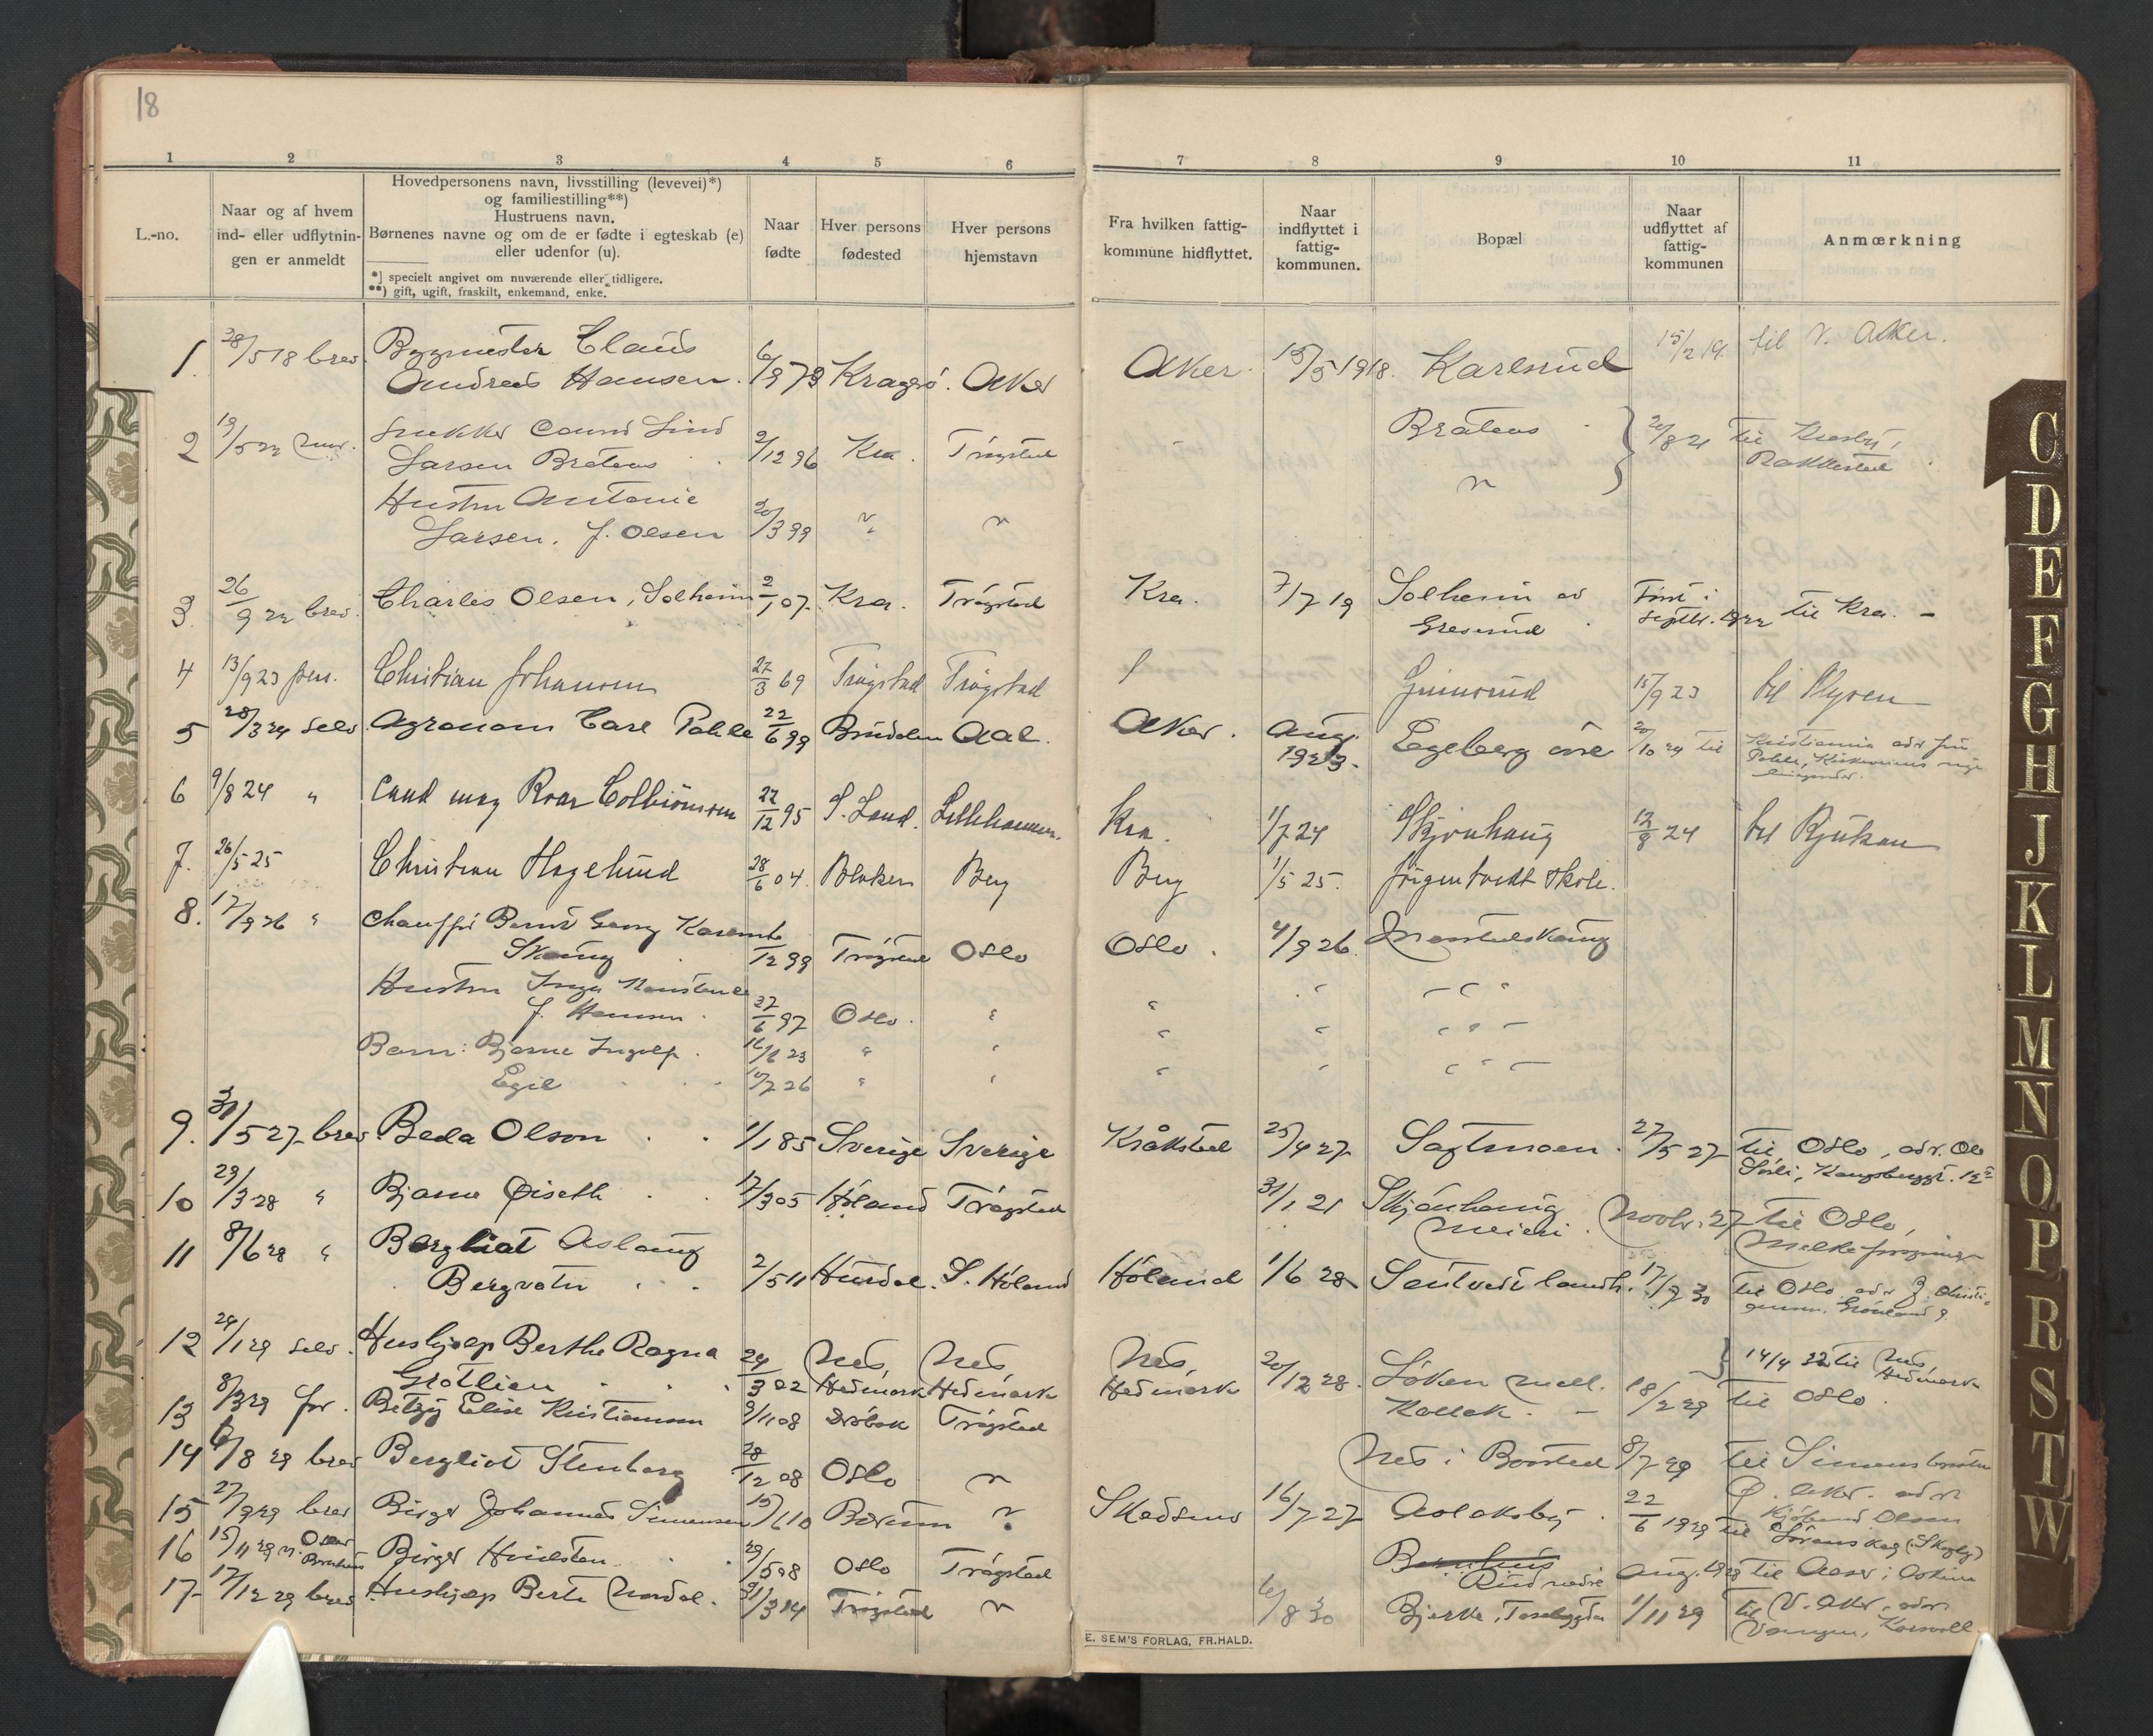 18
1 2 3 4 5 6 7 8 9 10 11
L.-no.
Naar og af hvem
ind- eller udflytnin-
gen er anmeldt
Hovedpersonens navn, livsstilling (levevei)*)
og familiestilling**)
Hustruens navn.
Børnenes navne og om de er fødte i egteskab (e)
eller udenfor (u).
*) specielt angivet om nuværende eller tidligere.
**) gift, ugift, fraskilt, enkemand, enke.
Naar
fødte
Hver persons
fødested
Hver persons
hjemstavn
Fra hvilken fattig-
kommune hidflyttet.
Naar
indflyttet i
fattig-
kommunen.
Bopæl
Naar
udflyttet af
fattig-
kommunen
Anmærkning
1. 28/5 18 brev. Byggmester Claus
Andreas Hansen. 6/9 73 Kragerø. Aker Aker. 15/5 1918. Karlsrud 15/2 19. til V. Aker.
2 19/5 22 Snekker Lind
Larsen Bråtens 2/12 96 Kra. Trøgstad Bråtens 20/8 21 til
Rakkestad
Hustru Antonie
Larsen, f. Olsen 20/3 99 " " "
3. 26/9 22 brev. Charles Olsen, Solheim 2/1 07. Kra. Trøgstad Kra. 7/7 19 Solheim av
Greverud Først i
septbr. 1922 til Kra. -
4 13/9 23 pers. Christian Johansen 27/3 69 Trøgstad Trøgstad Grimsrud 15/9 23 til Mysen
5 28/3 24 selv Agronom Carl Pahle 22/6 99 Aal. Aker. Aug.
1923. Egeberg øvre 20/10 24 til Kristiania adr fru
Pahle,
6 9/8 24 " Cand mag Roar Colbiørnsen 22/12 95 S. Land. Lillehammer. Kra. 1/7 24 Skjønhaug 12/8 24 til Rjukan
7. 26/5 25 Christian Hagelund 28/6 04. Blaker Berg Berg 1/5 25. Jørgentvedt skole.
8. 17/9 26 " Chauffør Bernt Georg
Skaug /12 99 Trøgstad Oslo Oslo. 4/9 26
Hustru Inga
f. Hansen. 27/6 97 Oslo. "
Barn: Bjarne Ingolf. 16/6 23 " "
Egil 10/7 26 " "
9. 31/5 27 brev. Beda Olson 1/1 85 Sverige Sverige Kråkstad 25/4 27 Sagtmoen. 27/5 27 til Oslo, adr. Ole
Sørli, Kongsbergt. 12
10 29/3 28 " Bjarne Øiseth 17/3 05 Høland Trøgstad 31/1 21 Skjønhaug
Meieri. Novbr. 27 til Oslo,
Melkeforsyning
11 8/6 28 " Bergliot Aslaug
Bergvatn 2/5 11 Hurdal. S. Høland Høland 1/6 28 Sentvedt landh. 17/7 30 til Oslo adr
Grønland 9
12 24/1 29 selv. Hushjælp Berthe Ragna
Grøtlien 24/3 02 Nes,
Hedmark Nes,
Hedmark Nes,
Hedmark 20/12 28. Løken mell. 14/4 32 til Nes,
Hedmark
13 8/3 29 for. Betzy Elise Kristiansen 9/11 08 Drøbak Trøgstad Kallak. - 18/2 29 til Oslo.
14 6/8 29 brev Bergliot Stenberg 28/12 08 Oslo " Nes i Båstad 8/7 29 til Simensbråten
Ø. Aker. adr.
Kjølsund Olsen
15 27/9 29 brev Birger Johannes Simensen 15/6 10 Bærum " Skedsmo 16/7 27 Aslaksby. 22/6 1929 til Lørenskog (Skogly)
16 15/11 29 v. Oskar Birger Hvidsten 29/5 08 Oslo Trøgstad Barnhus
Rud nedre Aug. 1928 til Aaser i Askim
17 17/12 29 brev Hushjælp Berte Nordal. 31/3 14 Trøgstad " 6/8 30 Bjerke, 1/11 29 til V. Aker, adr.
Vangen, Korsvoll
E. SEM'S FORLAG, FR.HALD.
C
D
E
F
G
H
J
K
L
M
N
O
P
R
S
T
W